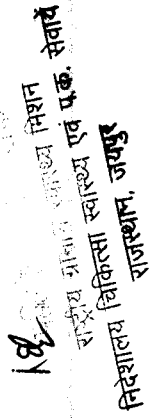 राष्ट्रीय ग्रामीण स्वास्थ्य मिशन
निदेशालय चिकित्सा स्वास्थ्य एवं प.क. सेवायें
राजस्थान, जयपुर